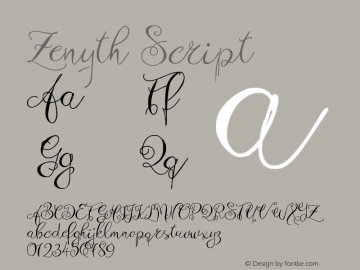 Zenyth Script
Aa Ff
a
Gg Qq
ABCDEFGHIJKLMNOPQRSTUVWXYZ
abcdefghijklmnopqrstuvwxyz
0123456789
© Design by fontke.com